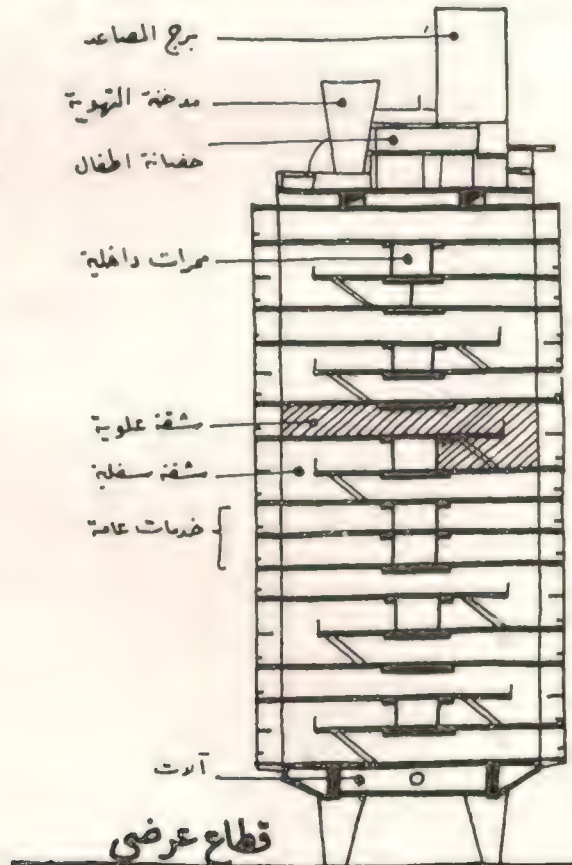 برج المصاعد
مدخنة التهوية
حضانة اطفال
ممرات داخلية
شقة علوية
شقة سفلية
خدمات عامة
آلات
قطاع عرضي